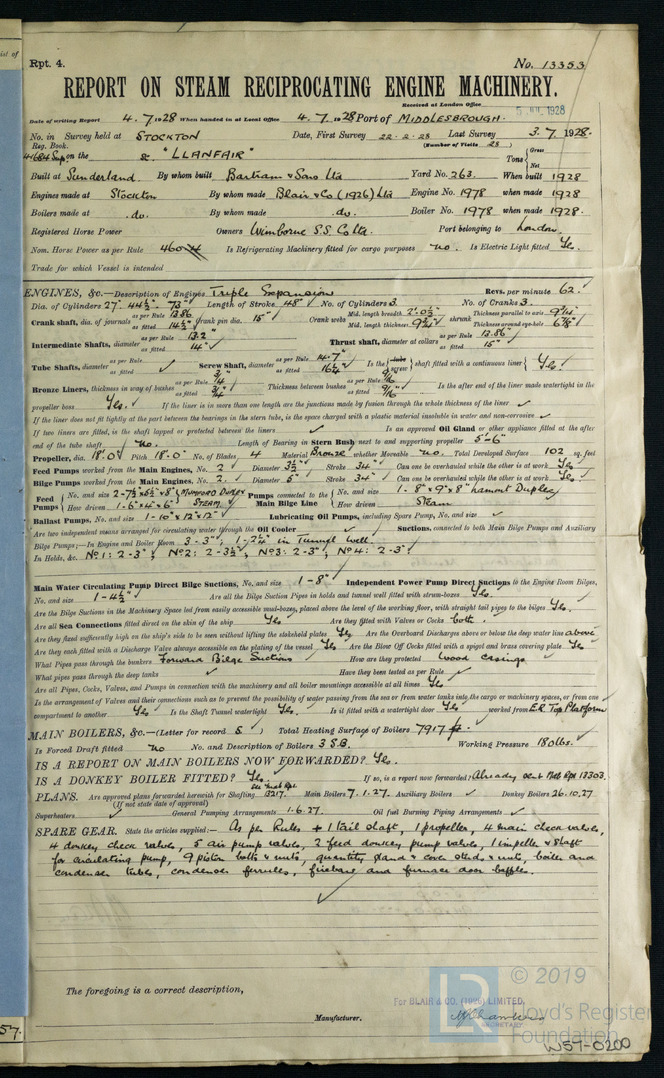 Rpt. 4. No. 13353
REPORT ON STEAM RECIPROCATING ENGINE MACHINERY.
Received at London Office 5 JUL 1928
Date of writing Report 4.7.1928 When handed in at Local Office 4.7.1928 Port of MIDDLESBROUGH.
No. in Survey held at STOCKTON Date, First Survey 22.2.28 Last Survey 3.7.1928.
Reg. Book. (Number of Visits 28)
on the "LLANFAIR" Tons Gross Net
Built at Sunderland. By whom built Bartram & Sons Ltd Yard No. 263. When built 1928
Engines made at Stockton By whom made Blair & Co (1926) Ltd Engine No. 1978 when made 1928
Boilers made at do. By whom made do. Boiler No. 1978 when made 1928.
Registered Horse Power Owners Wimborne S.S. Co Ltd. Port belonging to London.
Nom. Horse Power as per Rule 460 Is Refrigerating Machinery fitted for cargo purposes no. Is Electric Light fitted Yes.
Trade for which Vessel is intended
ENGINES, &c.—Description of Engines Triple Expansion Revs. per minute 62.
Dia. of Cylinders 27" 44½" 73" Length of Stroke 48" No. of Cylinders 3. No. of Cranks 3.
Crank shaft, dia. of journals as per Rule 13.86 as fitted 14½" Crank pin dia. 15" Crank webs Mid. length breadth 2'-0½" Mid. length thickness 9¼" shrunk Thickness parallel to axis 9¼" Thickness around eye-hole 6⅞"
Intermediate Shafts, diameter as per Rule 13.2 as fitted 14" Thrust shaft, diameter at collars as per Rule 13.86 as fitted 15"
Tube Shafts, diameter as per Rule as fitted Screw Shaft, diameter as per Rule 14.7" as fitted 16¼ Is the tube screw shaft fitted with a continuous liner Yes.
Bronze Liners, thickness in way of bushes as per Rule ¾" as fitted Thickness between bushes as per Rule 9/16 as fitted 9/16 Is the after end of the liner made watertight in the
propeller boss Yes. If the liner is in more than one length are the junctions made by fusion through the whole thickness of the liner
If the liner does not fit tightly at the part between the bearings in the stern tube, is the space charged with a plastic material insoluble in water and non-corrosive
If two liners are fitted, is the shaft lapped or protected between the liners Is an approved Oil Gland or other appliance fitted at the after
end of the tube shaft no. Length of Bearing in Stern Bush next to and supporting propeller 5'-6"
Propeller, dia. 18'.0" Pitch 18'.0" No. of Blades 4 Material Bronze whether Moveable no. Total Developed Surface 102 sq. feet
Feed Pumps worked from the Main Engines, No. 2 Diameter 3½" Stroke 34" Can one be overhauled while the other is at work Yes
Bilge Pumps worked from the Main Engines, No. 2 Diameter 5" Stroke 34" Can one be overhauled while the other is at work Yes
Feed Pumps No. and size 2-7½"x5½"x8" MUMFORD DUPLEX Pumps connected to the Main Bilge Line No. and size 1-8"x9"x8" Lamont Duplex
How driven 1-6"x4"x6" STEAM How driven Steam
Ballast Pumps, No. and size 1-10"x12"x12" Lubricating Oil Pumps, including Spare Pump, No. and size
Are two independent means arranged for circulating water through the Oil Cooler Suctions, connected to both Main Bilge Pumps and Auxiliary
Bilge Pumps;—In Engine and Boiler Room 3-3", 1-2¼" in Tunnel Well
In Holds, &c. No1: 2-3", No2: 2-3½", No3: 2-3", No4: 2-3"
Main Water Circulating Pump Direct Bilge Suctions, No. and size 1-8" Independent Power Pump Direct Suctions to the Engine Room Bilges,
No. and size 1-4½" Are all the Bilge Suction Pipes in holds and tunnel well fitted with strum-boxes Yes.
Are the Bilge Suctions in the Machinery Space led from easily accessible mud-boxes, placed above the level of the working floor, with straight tail pipes to the bilges Yes.
Are all Sea Connections fitted direct on the skin of the ship Yes Are they fitted with Valves or Cocks both.
Are they fixed sufficiently high on the ship's side to be seen without lifting the stokehold plates Yes Are the Overboard Discharges above or below the deep water line above
Are they each fitted with a Discharge Valve always accessible on the plating of the vessel Yes Are the Blow Off Cocks fitted with a spigot and brass covering plate Yes
What Pipes pass through the bunkers Forward Bilge Suctions How are they protected Wood casings
What pipes pass through the deep tanks Have they been tested as per Rule
Are all Pipes, Cocks, Valves, and Pumps in connection with the machinery and all boiler mountings accessible at all times Yes
Is the arrangement of Valves and their connections such as to prevent the possibility of water passing from the sea or from water tanks into the cargo or machinery spaces, or from one
compartment to another Yes Is the Shaft Tunnel watertight Yes. Is it fitted with a watertight door Yes worked from E.R. Top Platform
MAIN BOILERS, &c.—(Letter for record S) Total Heating Surface of Boilers 7917
Is Forced Draft fitted no No. and Description of Boilers 3 S.B. Working Pressure 180 lbs.
IS A REPORT ON MAIN BOILERS NOW FORWARDED? Yes.
IS A DONKEY BOILER FITTED? Yes. If so, is a report now forwarded? Already sent Mbo Rpt 13303.
PLANS. Are approved plans forwarded herewith for Shafting 13217. Main Boilers 7.1.27. Auxiliary Boilers Donkey Boilers 26.10.27
(If not state date of approval)
Superheaters General Pumping Arrangements 1.6.27. Oil fuel Burning Piping Arrangements
SPARE GEAR. State the articles supplied:— As per Rules + 1 tail shaft, 1 propeller, 4 main check valves,
4 donkey check valves, 5 air pump valves, 2 feed donkey pump valves, 1 impeller & shaft
for circulating pump, 9 piston bolts & nuts, quantity gland & cover studs & nuts, boiler and
condenser tubes, condenser ferrules, firebars and furnace door baffles.
The foregoing is a correct description,
For BLAIR & CO. (1926) LIMITED,
Manufacturer.
SECRETARY
© 2019
LR
Lloyd's Register
Foundation
W57-0200
57.